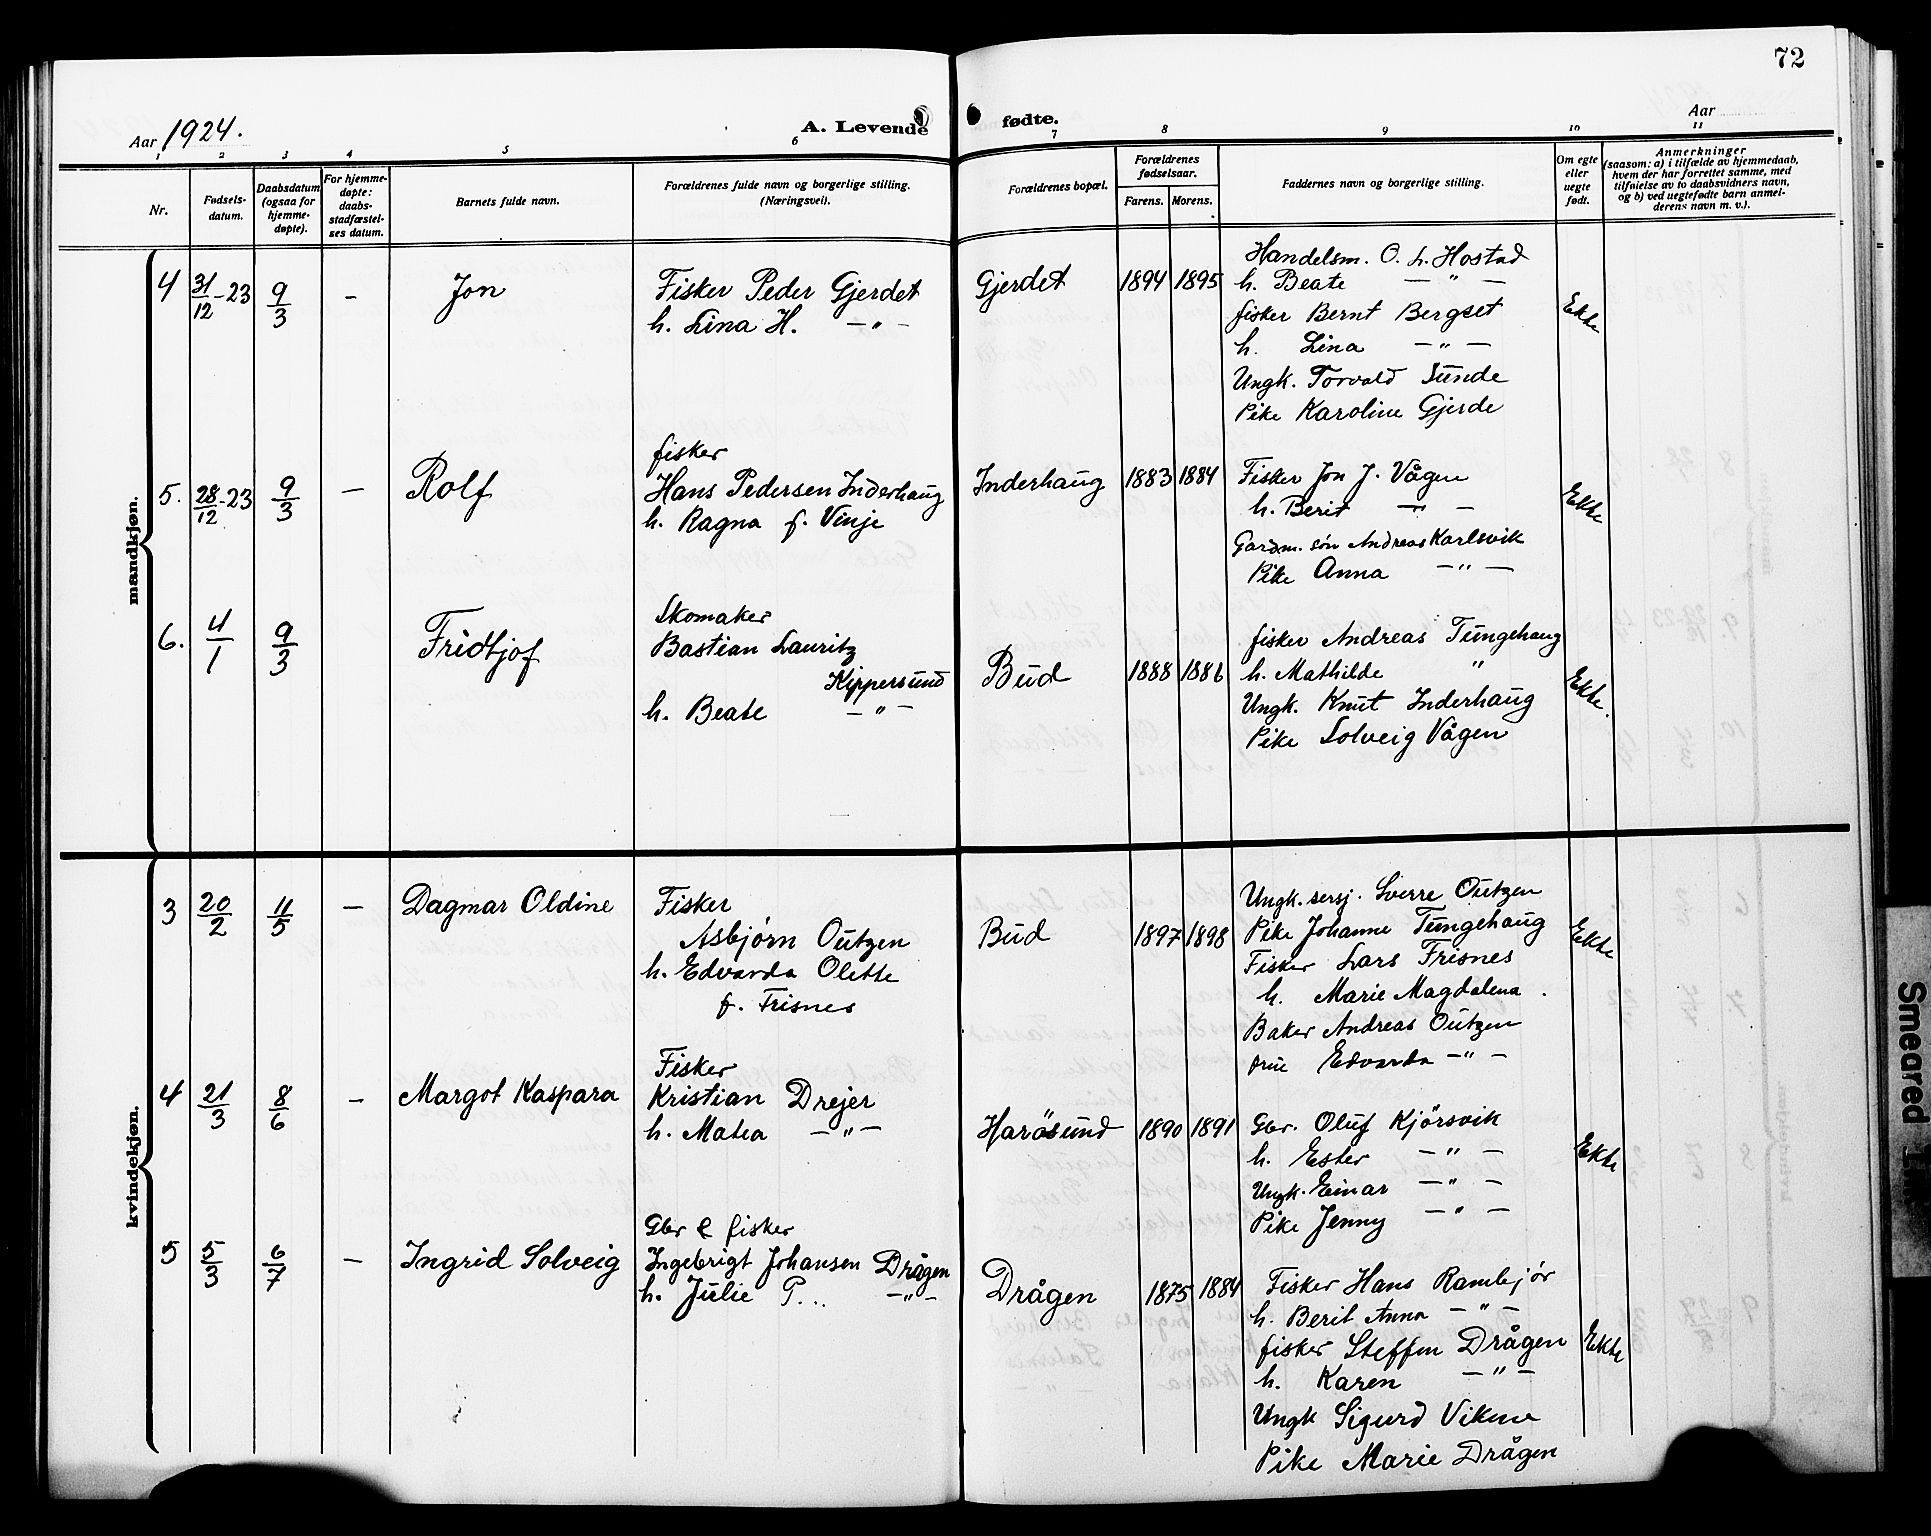 72
Aar 1924.
A. Levende fødte.
Aar
1 2 3 4 5 6 7 8 9 10 11
Nr.
Fødsels-
datum.
Daabsdatum
(ogsaa for
hjemme-
døpte).
For hjemme-
døpte:
daabs-
stadfæstel-
ses datum.
Barnets fulde navn.
Forældrenes fulde navn og borgerlige stilling.
(Næringsvei).
Forældrenes bopæl.
Forældrenes
fødselsaar.
Farens. Morens.
Faddernes navn og borgerlige stilling.
Om egte
eller
uegte
født.
Anmerkninger
(saasom: a) i tilfælde av hjemmedaab,
hvem der har forrettet samme, med
tilføielse av to daabsvidners navn,
og b) ved uegtefødte barn anmel-
derens navn m. v.).
mandkjøn.
4 31/12-23 9/3 - Jon
Fisker Peder Gjerdet
h. Lina H. -"-
Gjerdet 1894 1895
Handelsm. O. L. Hostad
h. Beate -"-
fisker Bernt Bergset
h. Lina -"-
Ungk. Torvald Sunde
Pike Karoline Gjerde
Ekte
5. 28/12-23 9/3 - Rolf
fisker
Hans Pedersen Inderhaug
h. Ragna f. Vinje
Inderhaug 1883 1884
Fisker Jon J. Vågen
h. Berit -"-
Gardm. søn Andreas Karlsvik
Pike Anna -"-
Ekte
6. 4/1 9/3 Fridtjof
Skomaker
Bastian Lauritz
Kippersund
h. Beate -"-
Bud 1888 1886
fisker Andreas Tungehaug
h. Mathilde "
Ungk. Knut Inderhaug
Pike Solveig Vågen
Ekte.
kvindekjøn.
3 20/2 11/5 - Dagmar Oldine
Fisker
Asbjørn Outzen
h. Edvarda Olette
f. Frisnes
Bud 1897 1898
Ungk. sersj. Sverre Outzen
Pike Johanne Tungehaug
Fisker Lars Frisnes
h. Marie Magdalena .
Baker Andreas Outzen
frue Edvarda -"-
Ekte
4 21/3 8/6 - Margot Kaspara
Fisker
Kristian Drejer
h. Matea -"-
Harøsund 1890 1891
Gbr. Oluf Kjörsvik
h. Ester -"-
Ungk. Einar -"-
Pike Jenny -"-
Ekte
5 5/3 6/7 - Ingrid Solveig
Gbr & fisker
Ingebrigt Johansen Drågen
h. Julie P... -"-
Drågen 1875 1884
Fisker Hans Rambjør
h. Berit Anna -"-
fisker Steffen Drågen
h. Karen -"-
Ungk Sigurd Vikme
Pike Marie Drågen
Ekte
Smeared